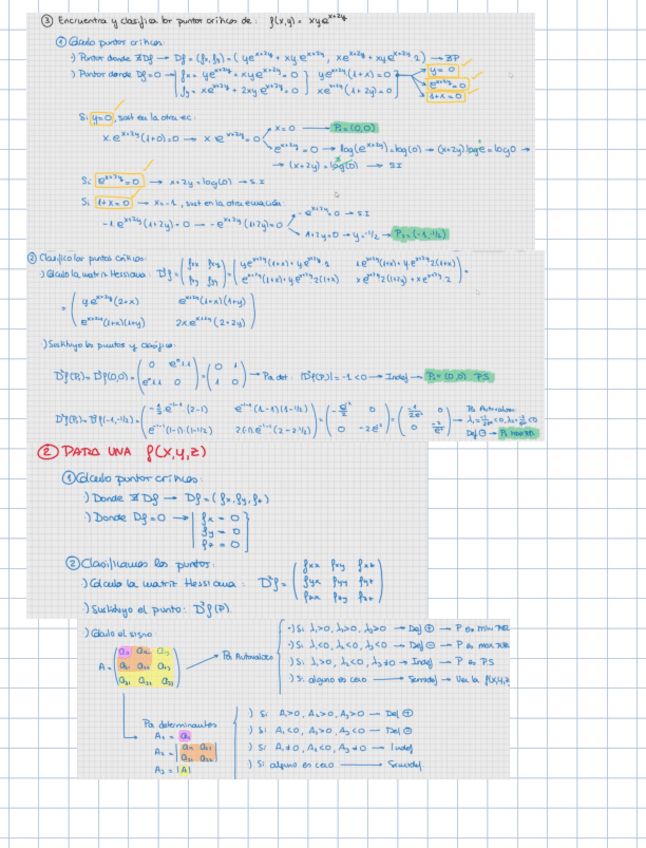 ③ Encuentra y clasifica los puntos críticos de: f(x,y) = xye^{x+2y}
① Cálculo puntos críticos:
·) Puntos donde ∄Df → Df = (fx, fy) = (ye^{x+2y} + xye^{x+2y}, xe^{x+2y} + xye^{x+2y}·2) → ∄P
·) Puntos donde Df=0 → fx = ye^{x+2y} + xye^{x+2y} = 0 } ye^{x+2y}(1+x) = 0 → y=0
fy = xe^{x+2y} + 2xye^{x+2y} = 0 } xe^{x+2y}(1+2y) = 0 e^{x+2y} = 0
1+x = 0
Si y=0, sust en la otra ec:
x·e^{x+2y}(1+0)=0 → x·e^{x+2y}=0 → x=0 → P₁=(0,0)
e^{x+2y}=0 → log(e^{x+2y})=log(0) → (x+2y)loge=log0 →
→ (x+2y)=log(0) → SI
Si e^{x+2y}=0 → x+2y=log(0) → S.I
Si 1+x=0 → x=-1, sust en la otra ecuación:
-1·e^{x+2y}(1+2y)=0 → -e^{x+2y}(1+2y)=0 → -e^{x+2y}=0 → S.I
1+2y=0 → y=-1/2 → P₂=(-1,-1/2)
② Clasifico los puntos críticos:
·) Cálculo la matriz Hessiana: D²f = (fxx fxy) = (ye^{x+2y}(1+x)+ye^{x+2y}·1 1e^{x+2y}(1+x)+y·e^{x+2y}2(1+x)) =
fxy fyy e^{x+2y}(1+x)+ye^{x+2y}2(1+x) xe^{x+2y}2(1+2y)+xe^{x+2y}·2
= (ye^{x+2y}(2+x) e^{x+2y}(1+x)(1+y))
e^{x+2y}(1+x)(1+y) 2xe^{x+2y}(2+2y)
·) Sustituyo los puntos y clasifico:
D²f(P₁)=D²f(0,0)= (0 e⁰·1·1) = (0 1) → Por det: |D²f(P₁)| = -1 < 0 → Indef → P₁=(0,0) P.S
e⁰·1·1 0 1 0
D²f(P₂)=D²f(-1,-1/2)= Por Autovalores
Def ⊖ → P₂ máx rel
② PARA UNA f(x,y,z)
① Cálculo puntos críticos:
·) Donde ∄Df → Df=(fx,fy,fz)
·) Donde Df=0 → fx = 0
fy = 0
fz = 0
② Clasificamos los puntos:
·) Cálculo la matriz Hessiana: D²f = (fxx fxy fxz)
fyx fyy fyz
fzx fzy fzz
·) Sustituyo el punto: D²f(P)
·) Cálculo el signo:
A = Por Autovalores
·) Si λ₁>0, λ₂>0, λ₃>0 → Def ⊕ → P es mín rel
·) Si λ₁<0, λ₂<0, λ₃<0 → Def ⊖ → P es max rel
·) Si λ₁>0, λ₂<0, λ₃≠0 → Indef → P es P.S
·) Si alguno es cero → Semidef
Por determinantes
A₁ = a₁
A₂ =
A₃ = |A|
) Si A₁>0, A₂>0, A₃>0 → Def ⊕
) Si A₁<0, A₂>0, A₃<0 → Def ⊖
) Si A₁≠0, A₂<0, A₃≠0 → Indef
) Si alguno es cero → Semidef